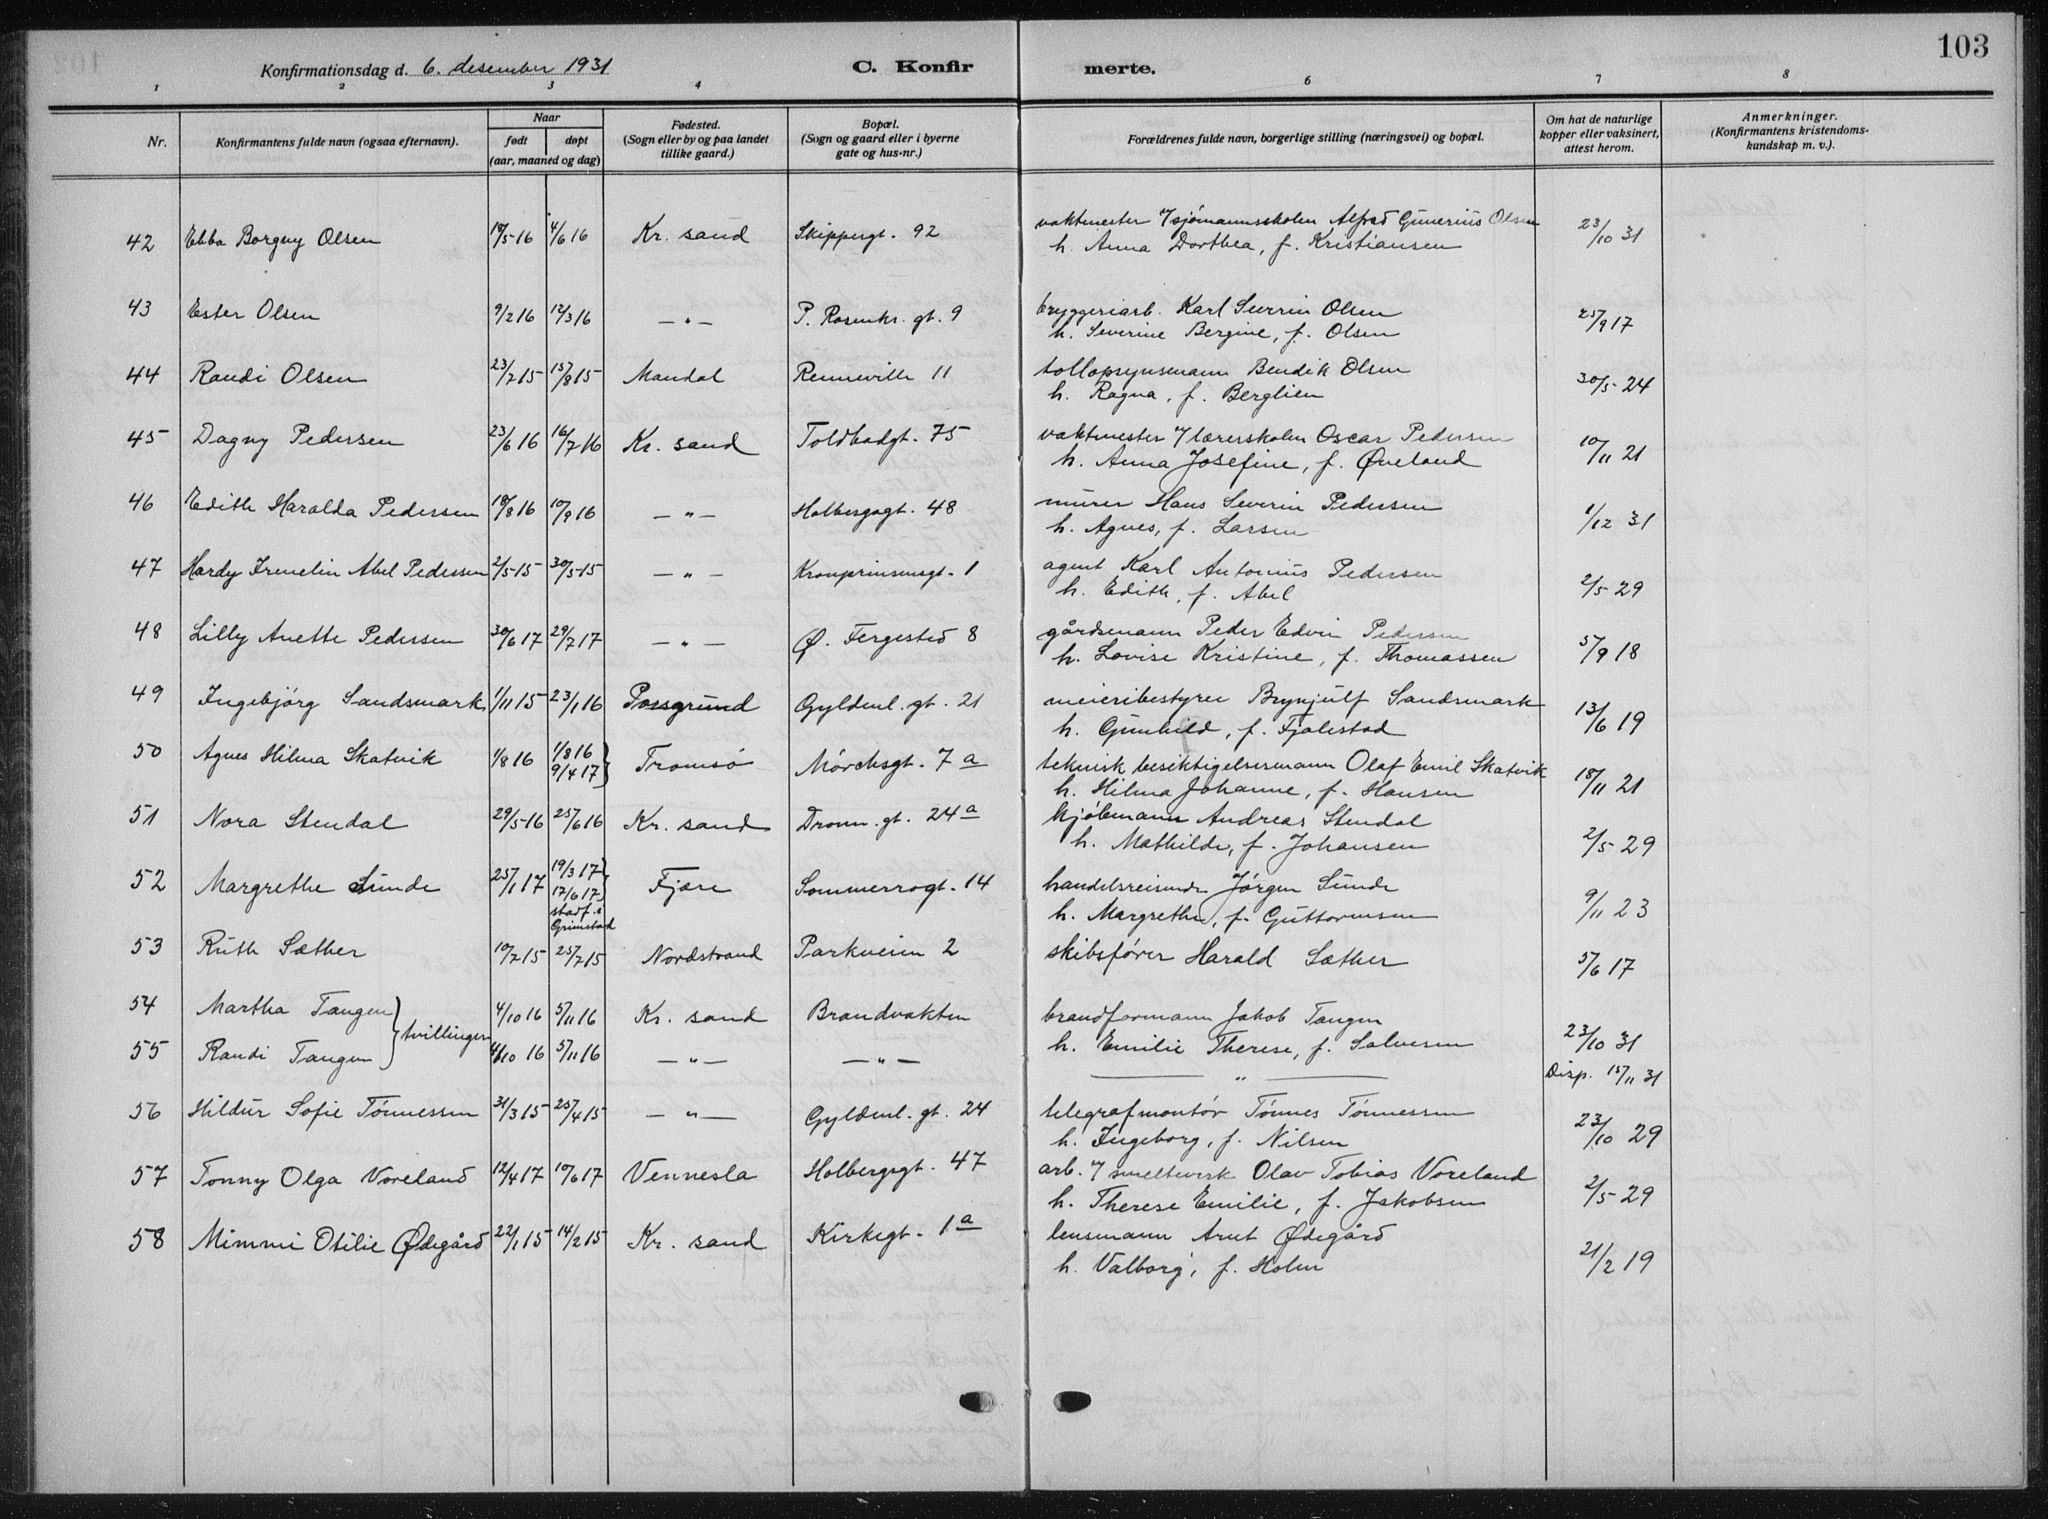 103
Konfirmationsdag d. 6. desember 1931
C. Konfir merte.
1 2 3 4 5 6 7 8
Nr.
Konfirmantens fulde navn (ogsaa efternavn).
Naar
født døpt
(aar, maaned og dag)
Fødested.
(Sogn eller by og paa landet
tillike gaard.)
Bopæl.
(Sogn og gaard eller i byerne
gate og hus-nr.)
Forældrenes fulde navn, borgerlige stilling (næringsvei) og bopæl.
Om hat de naturlige
kopper eller vaksinert,
attest herom.
Anmerkninger.
(Konfirmantens kristendoms-
kundskap m. v.).
42 Ebba Borgny Olsen 18/5 16 4/6 16 Kr. sand Skippergt. 92 vaktmester v/sjömannsskolen Alfred Gunerius Olsen 23/10 31
h. Anna Dorthea, f. Kristiansen
43 Ester Olsen 9/2 16 12/3 16 — " — P. Rosenkr. gt. 9 bryggeriarb. Karl Severin Olsen 25/9 17
h. Severine Bergine, f. Olsen
44 Randi Olsen 23/7 15 15/8 15 Mandal Rennevilh 11 tollopsynsmann Bendik Olsen 30/5 24
h. Ragna, f. Berglien
45 Dagny Pedersen 23/6 16 16/7 16 Kr. sand Toldbodgt. 75 vaktmester v/lærerskolen Oscar Pedersen 10/11 21
h. Anna Josefine, f. Øveland
46 Edith Haralda Pedersen 18/8 16 10/9 16 — " — Holbergsgt. 48 murer Hans Severin Pedersen 1/12 31
h. Agnes, f. Larsen
47 Hardy Irmelin Abel Pedersen 2/5 15 30/5 15 — " — Kronprinsensgt. 1 agent Karl Antonius Pedersen 2/5 29
h. Edith, f. Abel
48 Lilly Anette Pedersen 30/6 17 29/7 17 — " — Ø. Fergested 8 gårdsmann Peder Edvin Pedersen 5/9 18
h. Lovise Kristine, f. Thomassen
49 Ingebjörg Sandsmark 1/11 15 23/1 16 Porsgrund Gyldenl. gt. 21 meieribestyrer Brynjulf Sandsmark 13/6 19
h. Gunhild, f. Fjalestad
50 Agnes Hilma Skatvik 1/8 16 1/8 16 9/4 17 } Tromsö Mörchsgt. 7 a teknisk besiktigelsesmann Olaf Emil Skatvik 18/11 21
h. Hilma Johanne, f. Hansen
51 Nora Stendal 29/5 16 25/6 16 Kr. sand Dronn. gt. 24 a kjöbmann Andreas Stendal 2/5 29
h. Mathilde, f. Johansen
52 Margrethe Sunde 25/1 17 19/3 17 17/6 17 } stadf. i Grimstad Fjære Sommerrogt. 14 handelsreisende Jörgen Sunde 9/11 23
h. Margrethe, f. Guttormsen
53 Ruth Sæther 10/7 15 25/7 15 Nordstrand Parkveien 2 skibsförer Harald Sæther 5/6 17
54 Martha Tangen } tvillinger 4/10 16 5/11 16 Kr. sand Brandvakten brandformann Jakob Tangen
h. Emilie Therese, f. Salvesen 23/10 31
55 Randi Tangen 4/10 16 5/11 16 — " — — " — — " — Disp. 15/11 31
56 Hildur Sofie Tönnessen 31/3 15 25/4 15 — " — Gyldenl. gt. 24 telegrafmontör Tönnes Tönnessen 23/10 29
h. Ingeborg, f. Nilsen
57 Tonny Olga Voreland 12/4 17 10/6 17 Vennesla Holbergsgt. 47 arb. v/smeltverk Olav Tobias Voreland 2/5 29
h. Therese Emilie, f. Jakobsen
58 Mimmi Otilie Ødegård 22/1 15 14/2 15 Kr. sand Kirkegt. 1 a lensmann Arnt Ødegård 21/2 19
h. Valborg, f. Holm